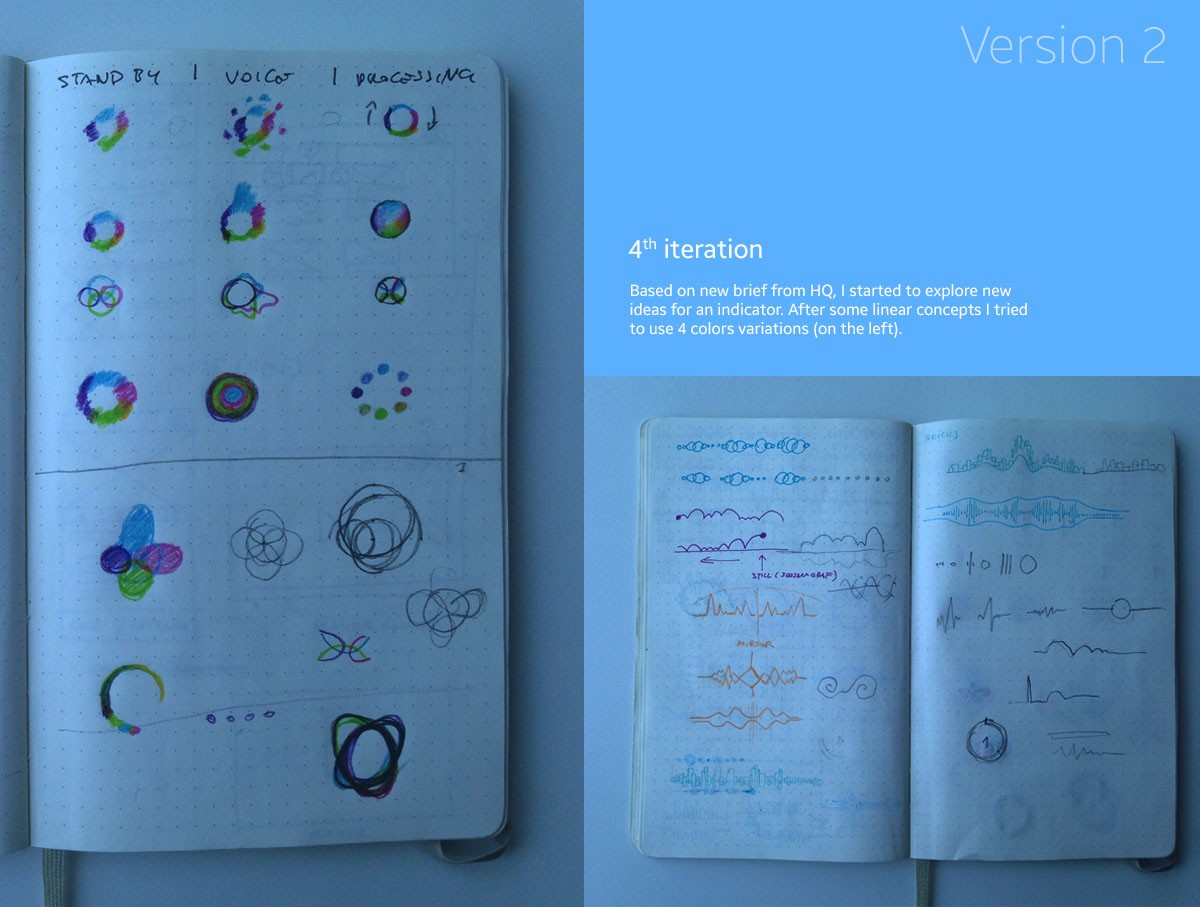 STAND BY | VOICE | PROCESSING
1
Version 2
4th iteration
Based on new brief from HQ, I started to explore new
ideas for an indicator. After some linear concepts I tried
to use 4 colors variations (on the left).
MIRROR
1